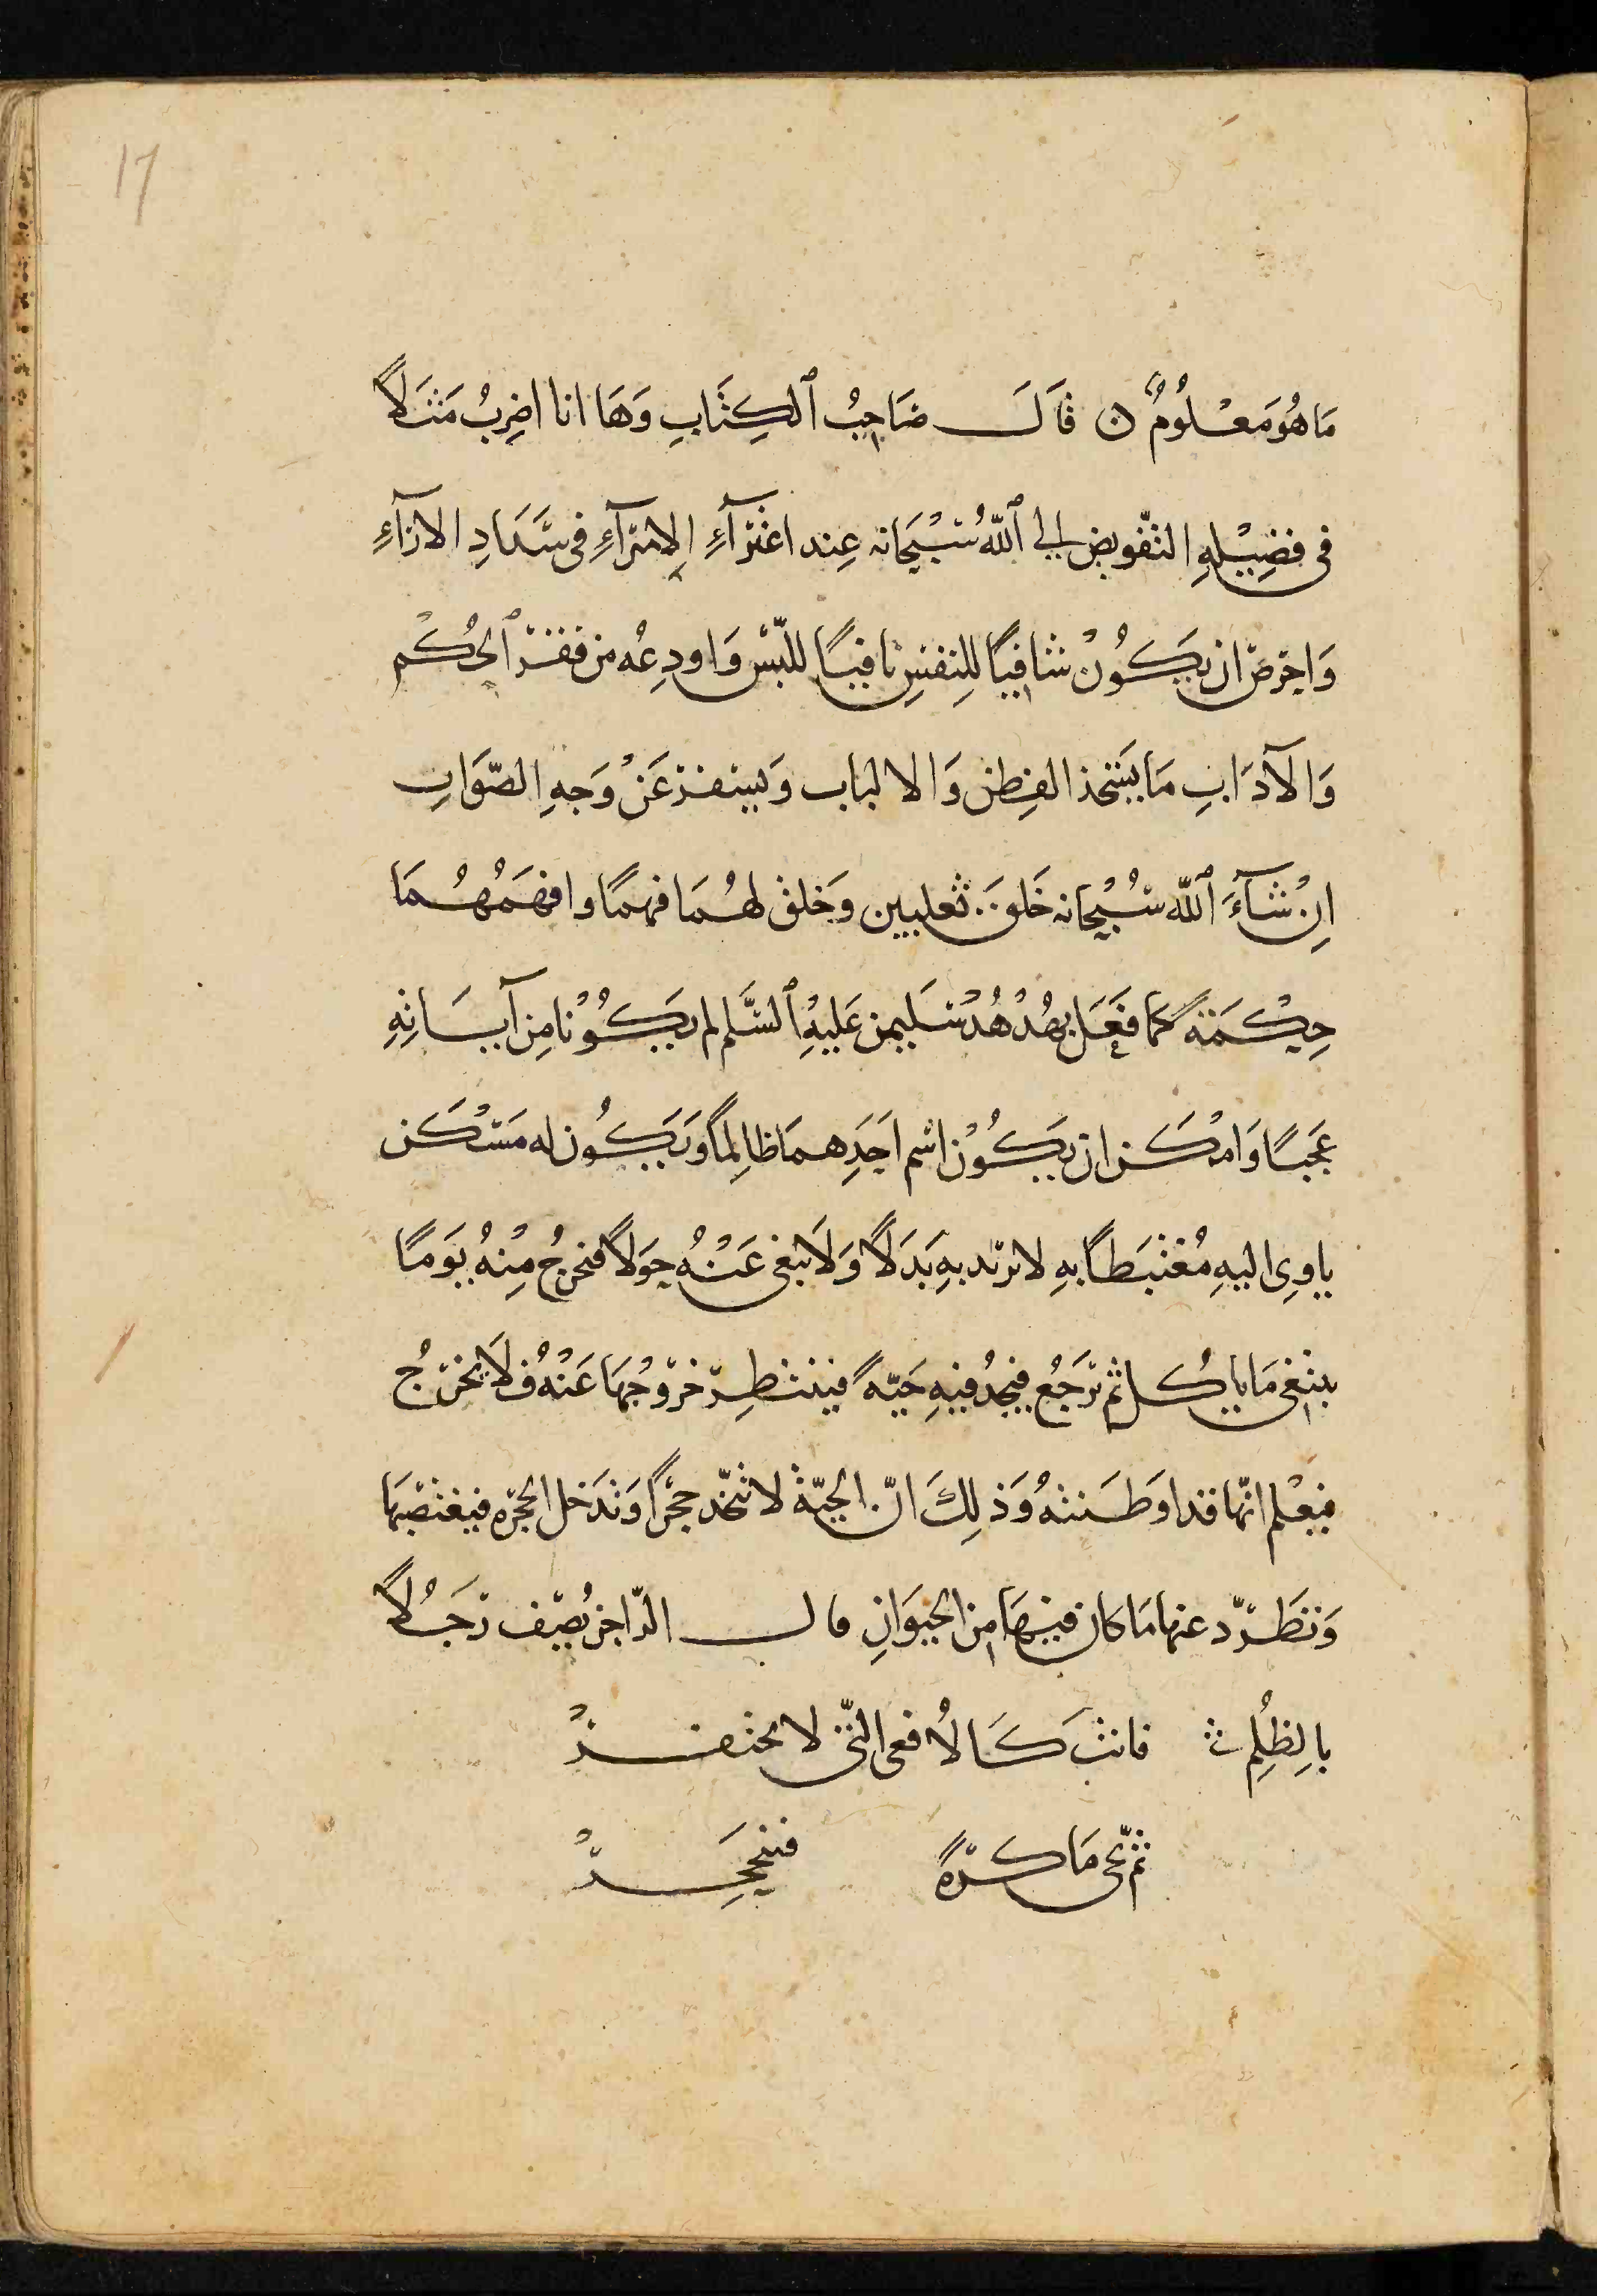 17
مَا هُوَ مَعْلُومٌ ن قَالَ صَاحِبُ ٱلْكِتَابِ وَهَا انا اضرِبُ مَثَلًا
فى فضِيْلهِ التفّويض الى ٱللّٰهُ سُبْحَانه عِند اعْتِرَآءِ الِامْتِرآءِ فى سَّدَادِ الارَآءِ
وَاحِرصّ ان يَكُوْنْ شافيًا لِلنفسِ نافيًا للبّسْ وَاودِعُه من فقرْ ٱلحُكْم
وَالآدَابِ مَا يشَحَذ الفِطن وَالالباب وَيسفرْ عَنْ وَجهِ الصّوَابِ
اِنْ شآءَ ٱللّٰه سُبْحانه خَلَقَ ثعلبين وَخَلق لهُمَا فهمًا وافهَمُهُمَا
حِكْمَةً كما فعَل بهُدْهُدْ سُلَيمن عَليْهِ ٱلسَّلم لم يَكُوْنا مِن آيَاتِهِ
عَجبًا وَامْكَن ان يَكُوْن اسْم احَدِهمَا ظالِمًا وَيَكُون له مَسْكَن
ياوِى اليهِ مُغْتبَطًا بهِ لا يرّيد بهِ بَدَلًا وَلَا يبغى عَنْهُ حِوَلًا فخرجُ مِنْهُ يَومًا
يبتغى مَا ياكُل ثم يرَجَعُ فيجدُ فيهِ حَيّهً فينتظِرّ خرّوجُهَا عَنْهُ فلَا يَخرّجُ
فيعْلم انّها قد اوَطَنتهُ وَذلِكَ انّ الحيّةَ لا تتخّد حجْرًا وَتدَخل الحجْره فيغتصّبهَا
وَتطَرّد عنها مَا كان فيهَا مِن الحيوَانِ قال الرّاجز يُصِّف رَجُلًا
بالِظُلِم فانتَ كَالُافعى التّى لا تحتفرُ
ثم تجّى مَاكرّهً فتنجَحِرُّ